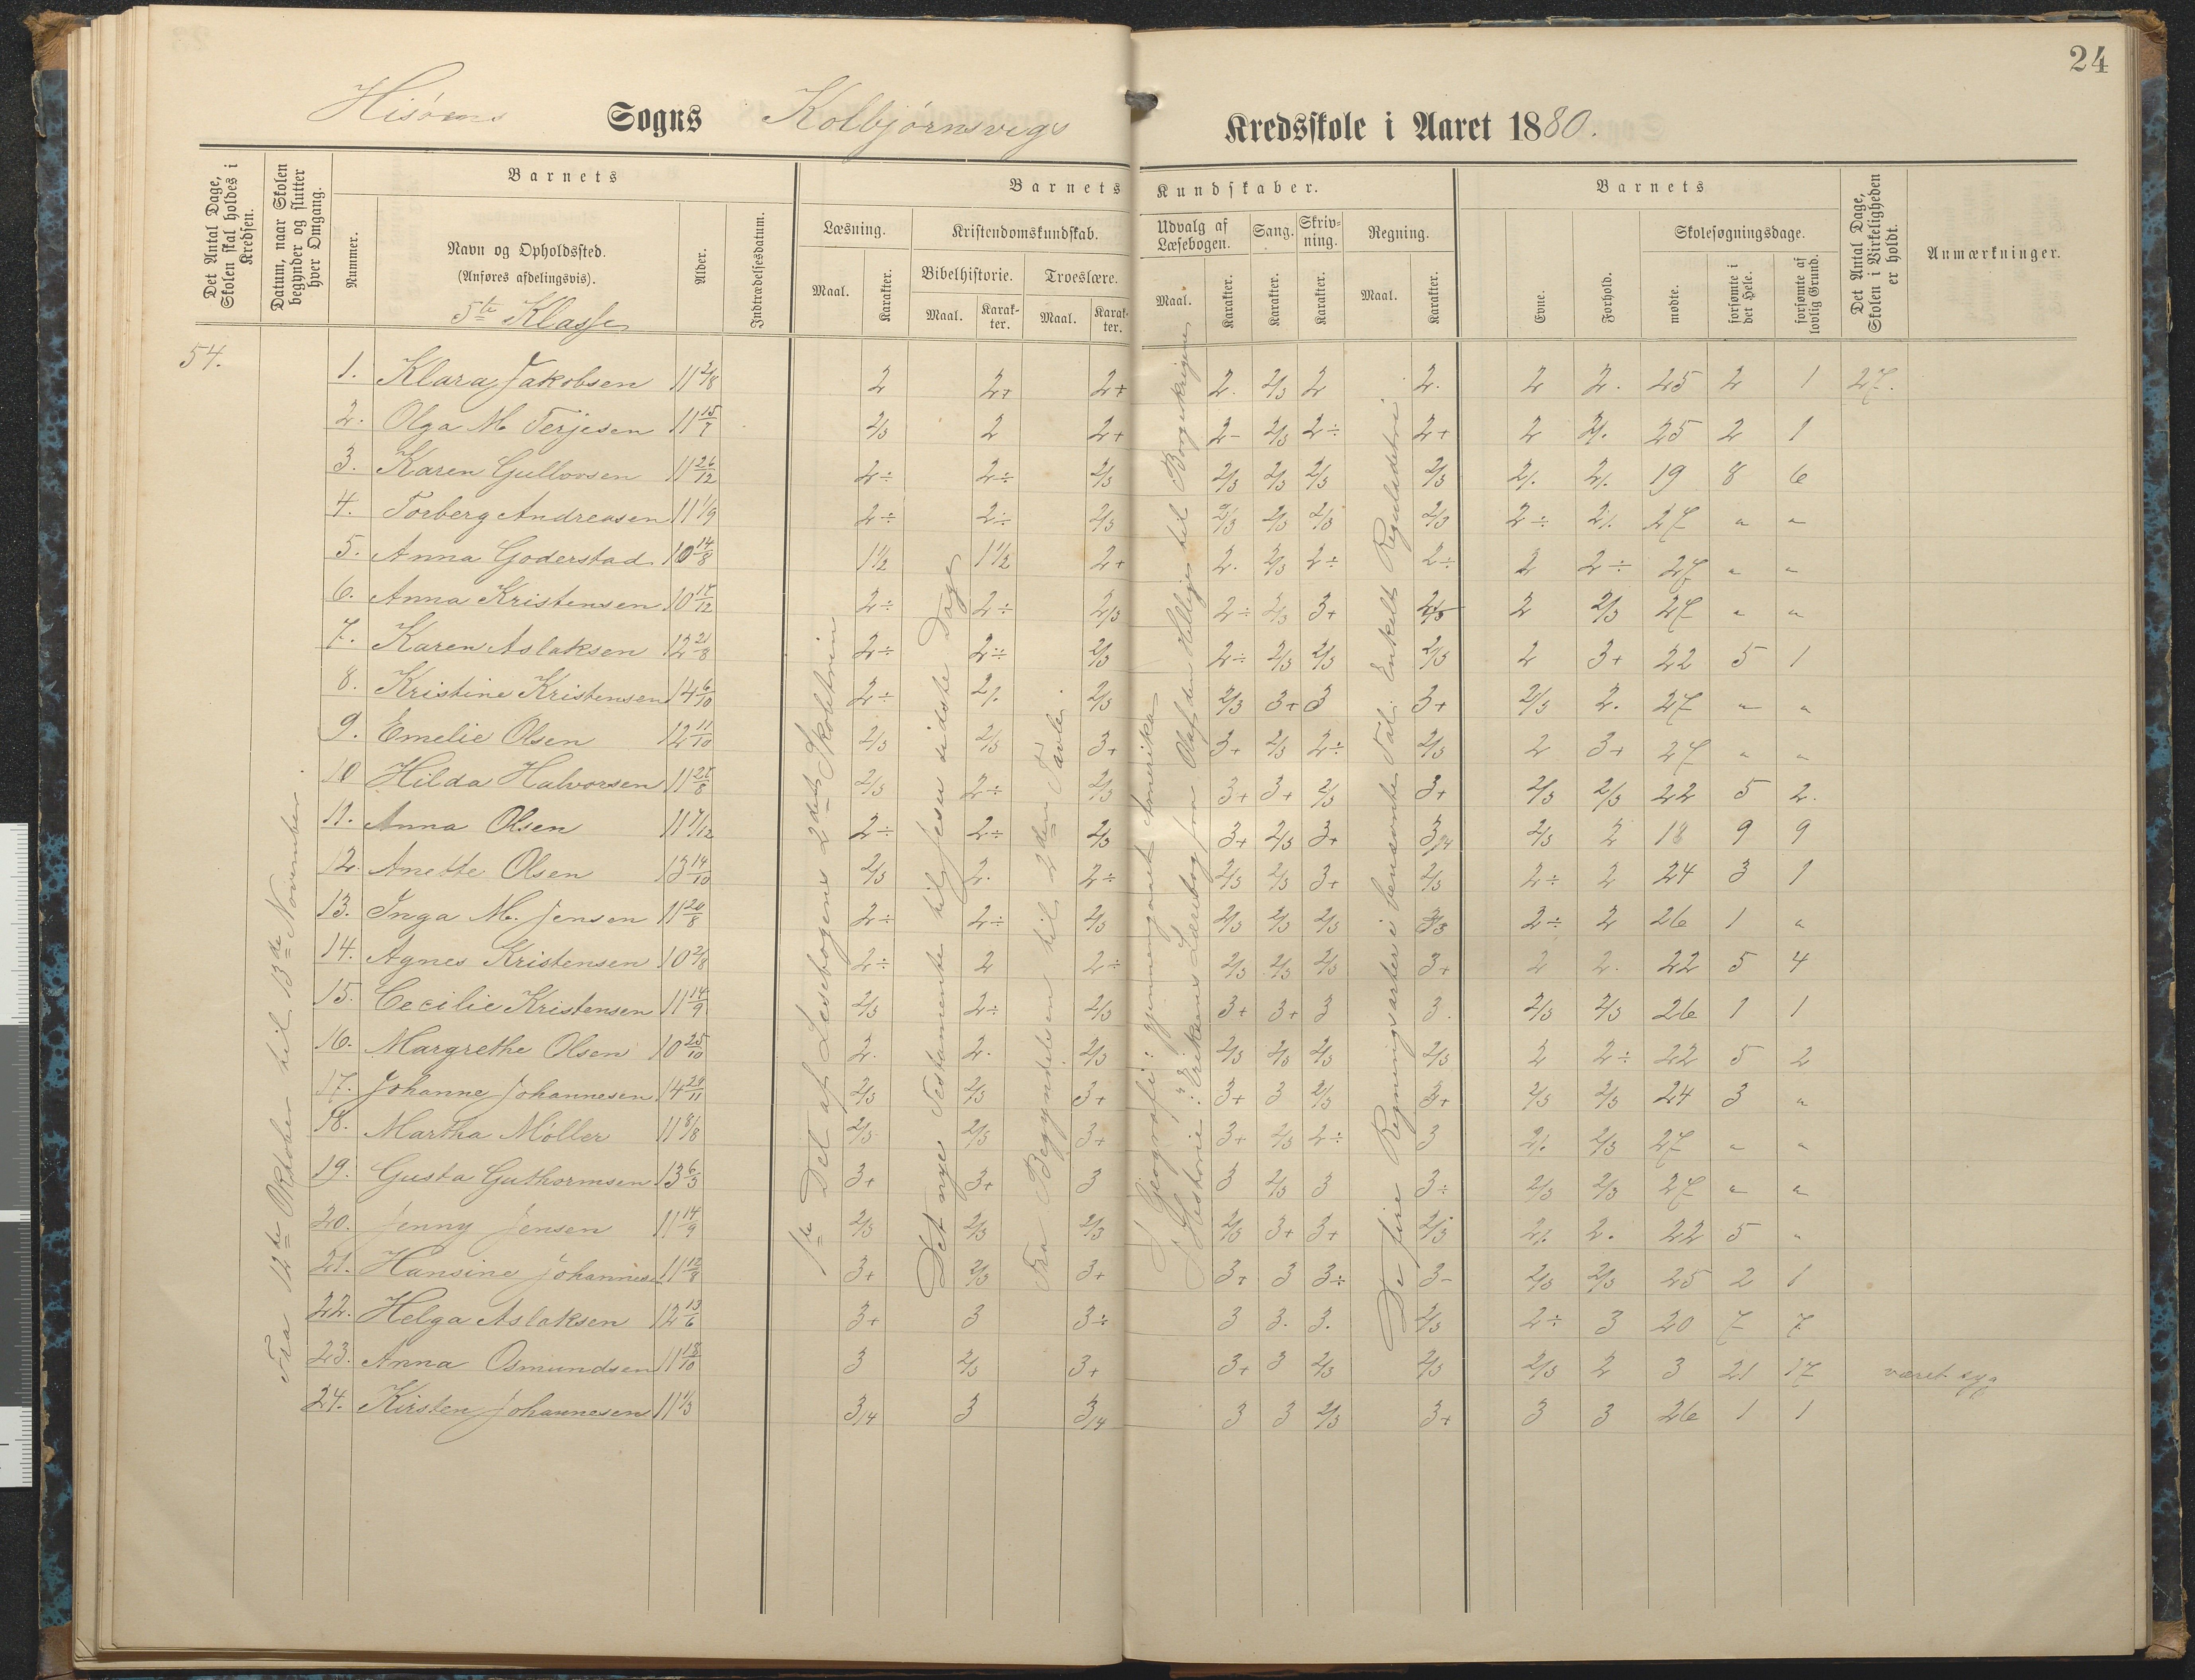 24
Hisøens Sogns Kolbjørnsvigs Kredsskole i Aaret 1880.
Det Antal Dage, Skolen skal holdes i Kredsen.
Datum, naar Skolen begynder og slutter hver Omgang.
Barnets
Nummer.
Navn og Opholdssted.
(Anføres afdelingsvis).
5te Klasse
Alder.
Indtrædelsesdatum.
Barnets Kundskaber.
Læsning.
Maal.
Karakter.
Kristendomskundskab.
Bibelhistorie.
Maal.
Karakter.
Troeslære.
Maal.
Karakter.
Udvalg af Læsebogen.
Maal.
Karakter.
Sang.
Karakter.
Skrivning.
Karakter.
Regning.
Maal.
Karakter.
Barnets
Evne.
Forhold.
Skolesøgningsdage.
mødte.
forsømte i det Hele.
forsømte af lovlig Grund.
Det Antal Dage, Skolen i Virkeligheden er holdt.
Anmærkninger.
54.
Fra 12te Oktober til 13de November.
1ste Del af Læsebogens 2det Skoletrin
Det nye Testamente til Jesu sidste Dage
Fra Begyndelsen til 2den Tavle.
I Geografi: gjennemgaaet Amerika
I Historie: Eriksens Lærebog fra Olaf den Hellige til Borgerkrigene
De fire Regningsarter i benævnte Tal. Enkelt Reguladetri
1. Klara Jakobsen 11 2/8 2 2+ 2+ 2. 2/3 2 2. 2 2. 25 2 1 27.
2. Olga M. Terjesen 11 15/7 2/3 2 2+ 2- 2/3 2÷ 2+ 2 2/. 25 2 1
3. Karen Gullovsen 11 26/12 2÷ 2÷ 2/3 2/3 2/3 2/3 2/3 2/. 2/. 19 8 6
4. Torberg Andreasen 11 1/9 2÷ 2÷ 2/3 2/3 2/3 2/3 2/3 2÷ 2/. 27 " "
5. Anna Goderstad 10 14/8 1 1/2 1 1/2 2+ 2. 2/3 2÷ 2÷ 2 2÷ 27 " "
6. Anna Kristensen 10 17/12 2÷ 2÷ 2/3 2÷ 2/3 3+ 2/3 2 2/3 27 " "
7. Karen Aslaksen 12 21/8 2÷ 2÷ 2/3 2÷ 2/3 2/3 2/3 2 3+ 22 5 1
8. Kristine Kristensen 14 6/10 2÷ 2/. 2/3 2/3 3+ 3 3+ 2/3 2. 27 " "
9. Emelie Olsen 12 11/10 2/3 2/3 3+ 3+ 2/3 2÷ 2/3 2 3+ 27 " "
10 Hilda Halvorsen 11 25/8 2/3 2÷ 2/3 3+ 3+ 2/3 3+ 2/3 2/3 22 5 2.
11. Anna Olsen 11 7/12 2÷ 2÷ 2/3 3+ 2/3 3+ 3/4 2/3 2 18 9 9
12. Anette Olsen 13 14/10 2/3 2. 2÷ 2/3 2/3 3+ 2/3 2÷ 2 24 3 1
13. Inga M. Jensen 11 20/8 2÷ 2÷ 2/3 2/3 2/3 2/3 2/3 2÷ 2 26 1 "
14. Agnes Kristensen 10 2/8 2÷ 2 2÷ 2/3 2/3 2/3 3+ 2 2. 22 5 4
15. Cecilie Kristensen 11 14/9 2/3 2÷ 2/3 3+ 3+ 3 3. 2/3 2/3 26 1 1
16. Margrethe Olsen 10 25/10 2. 2. 2/3 2/3 2/3 2/3 2/3 2 2÷ 22 5 2
17. Johanne Johannesen 14 28/11 2/3 2/3 3+ 3+ 3 2/3 3+ 2/3 2/3 24 3 "
18. Martha Møller 11 8/8 2/3 2/3 3+ 3+ 2/3 2÷ 3 2/. 2/3 27 " "
19. Gusta Guthormsen 13 6/3 3+ 3+ 3 3 2/3 3 3÷ 2/3 2/3 27 " "
20. Jenny Jensen 11 14/9 2/3 2/3 2/3 2/3 3+ 3+ 2/3 2/. 2. 22 5 "
21. Hansine Johannesen 11 12/8 3+ 2/3 3+ 3+ 3 3÷ 3- 2/3 2/3 25 2 1
22. Helga Aslaksen 12 13/6 3+ 3 3÷ 3 3. 3. 2/3 2÷ 3 20 7 7
23. Anna Osmundsen 11 18/10 3 2/3 3+ 3+ 3 2/3 2/3 2/3 2 3 21 17 været syg
24. Kirsten Johannesen 11 1/3 3/4 3 3/4 3 3 2/3 3+ 3 3 26 1 1